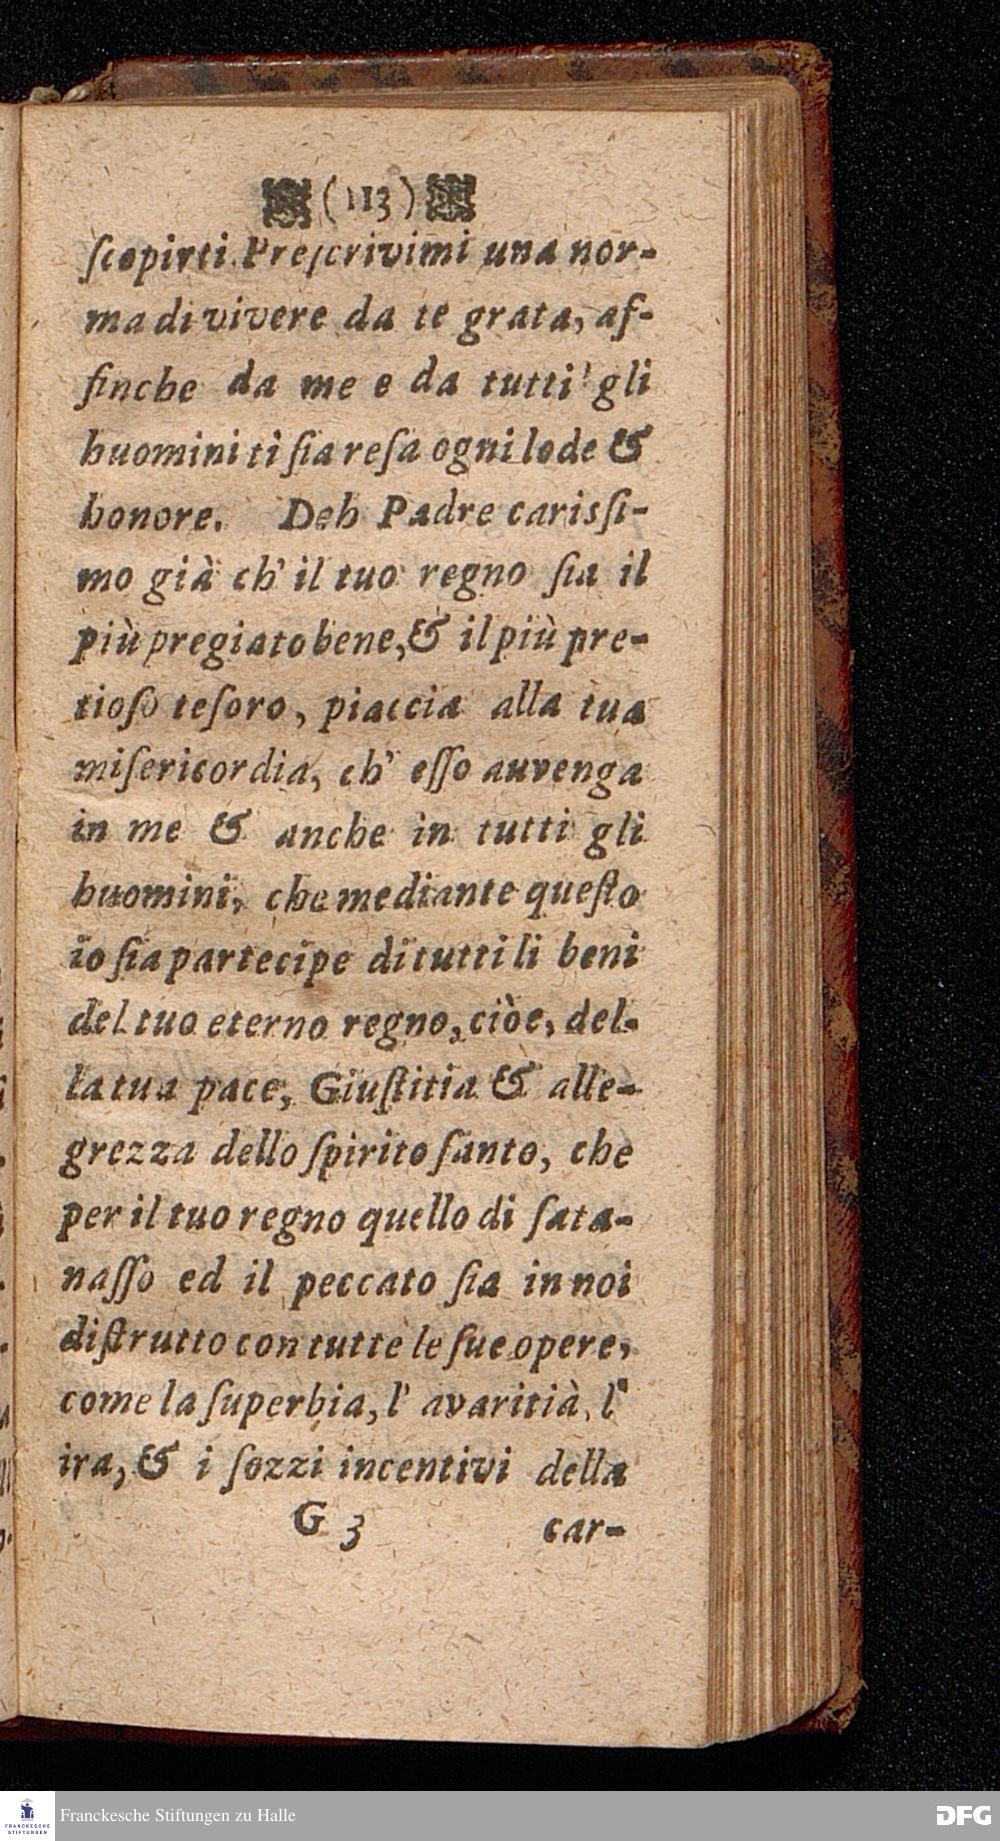 (113)
ſcopirti. Preſcrivimi una nor-
ma di vivere da te grata, af-
finche da me e da tutti gli
huomini ti ſia reſa ogni lode &
honore. Deh Padre carisſi-
mo già ch' il tuo regno ſia il
più pregiato bene, & il più pre-
tioſo teſoro, piaccia alla tua
miſericordia, ch' eſſo auvenga
in me & anche in tutti gli
huomini, che mediante queſto
io ſia partecipe di tutti li beni
del tuo eterno regno, ciòe, del-
la tua pace, Giuſtitia & alle-
grezza dello ſpirito ſanto, che
per il tuo regno quello di ſata-
naſſo ed il peccato ſia in noi
diſtrutto con tutte le ſue opere,
come la ſuperbia, l' avaritià, l'
ira, & i ſozzi incentivi della
G 3 car-
FRANCKESCHE STIFTUNGEN
Franckesche Stiftungen zu Halle
DFG